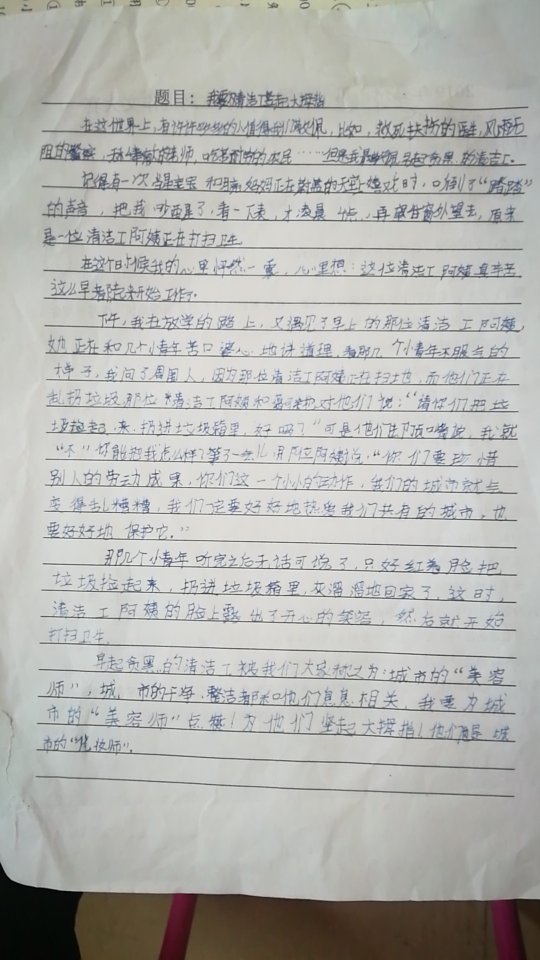 题目：我为清洁工竖起大拇指
在这世界上，有许许多多的人值得我们敬佩，比如，救死扶伤的医生，风雨无
阻的警察，教书育人的老师，吃苦耐劳的农民……但是我最敬佩早起贪黑的清洁工。
记得有一次，当星宝宝和月亮妈妈正在蔚蓝的天空嬉戏时，只听到了“踏踏”
的声音，把我吵醒了，看一下表，才凌晨4点，再往窗外望去，原来
是一位清洁工阿姨正在打扫卫生
在这个时候我的心里怦然一震，心里想：这位清洁工阿姨真辛苦
这么早起来开始工作了。
下午，我在放学的路上，又遇见了早上的那位清洁工阿姨，
她正在和几个小青年苦口婆心地讲道理，看那几个小青年不服气的
样子，我问了周围人，因为那位清洁工阿姨正在扫地，而他们正在
乱扔垃圾那位清洁工阿姨和蔼地对他们说：“请你们把垃
圾捡起来，扔进垃圾箱里，好吗？”可是他们顶嘴说，我就
“不”你能把我怎么样？等了一会儿那位阿姨说，“你们要珍惜
别人的劳动成果，你们这一个小小的动作，我们的城市就会
变得乱糟糟，我们一定要好好地热爱我们共有的城市，也
要好好地保护它。”
那几个小青年听完之后无话可说了，只好红着脸把
垃圾捡起来，扔进垃圾箱里，灰溜溜地回家了，这时，
清洁工阿姨的脸上露出了开心的笑容，然后就开始
打扫卫生
早起贪黑的清洁工被我们大家称之为：城市的“美容
师”，城市的干净、整洁都和他们息息相关，我要为城
市的“美容师”点赞！为他们竖起大拇指！他们是城
市的“化妆师”。